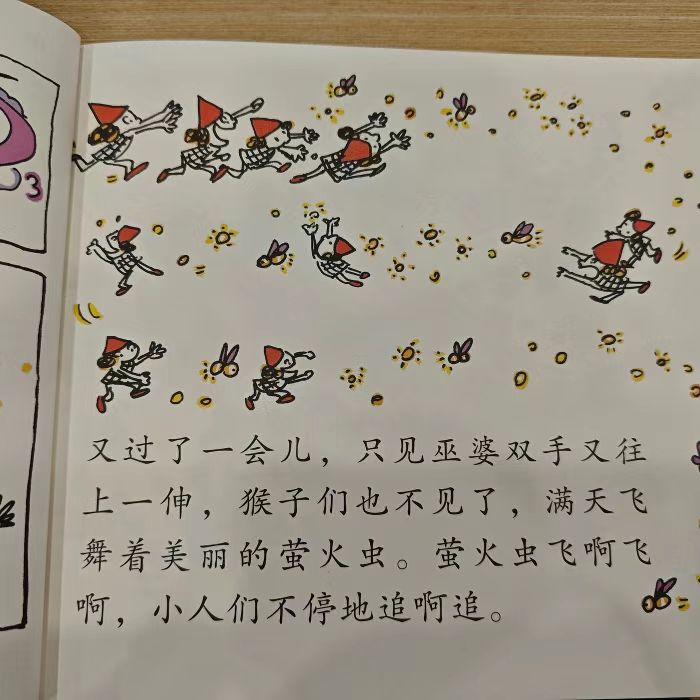 3
又过了一会儿，只见巫婆双手又往
上一伸，猴子们也不见了，满天飞
舞着美丽的萤火虫。萤火虫飞啊飞
啊，小人们不停地追啊追。